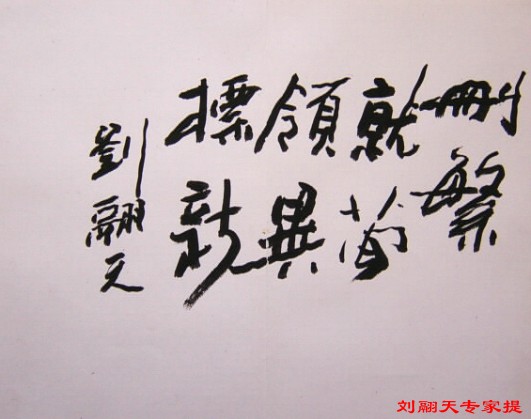 删繁
就简
領異
標新
劉翮天
刘翮天专家提